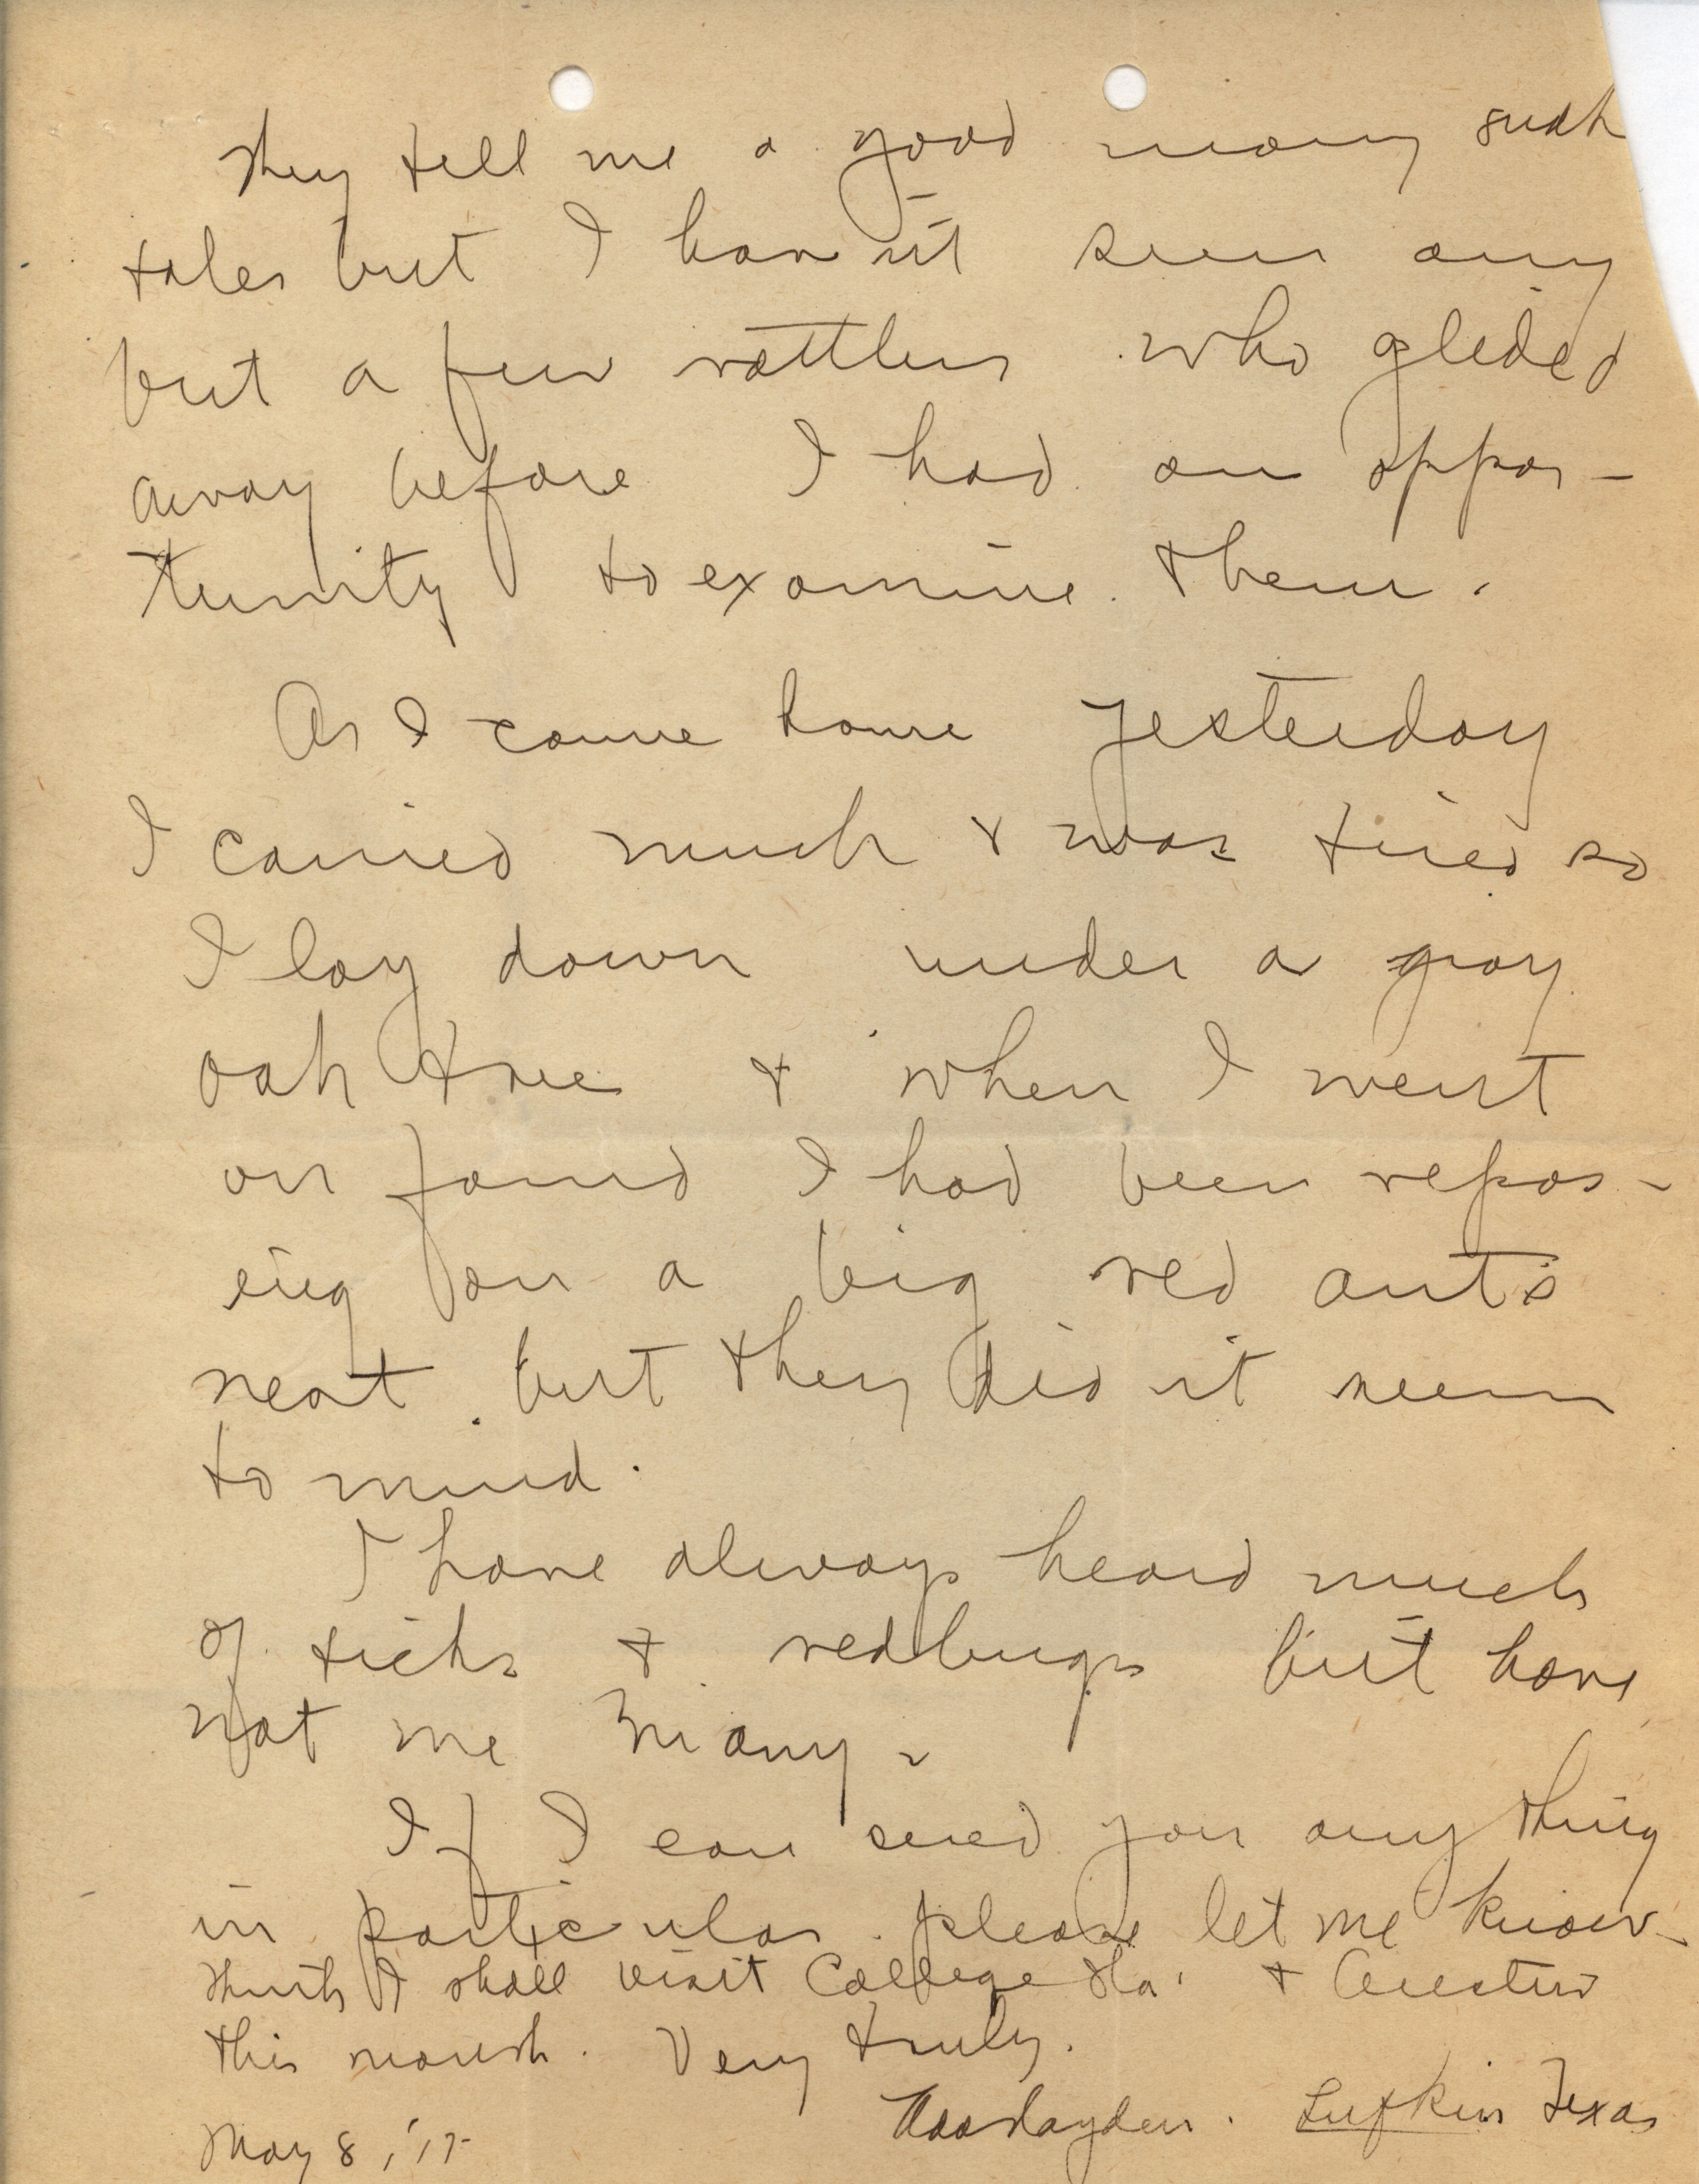 They tell me a good many such
tales but I haven't seen any
but a few rattlers who glided
away before I had an oppor-
tunity to examine them.
As I came home yesterday
I carried much & was tired so
I lay down under a gray
oak tree & when I went
on found I had been repos-
eing on a big red ants
nest but they did n't seem
to mind.
I have always heard much
of ticks & redbugs but have
not me many.
If I can send you any thing
in particular please let me know.
Think I shall visit College Sta. & Austin
this month. Very truly.
Lufkin Texas
May 8, '17